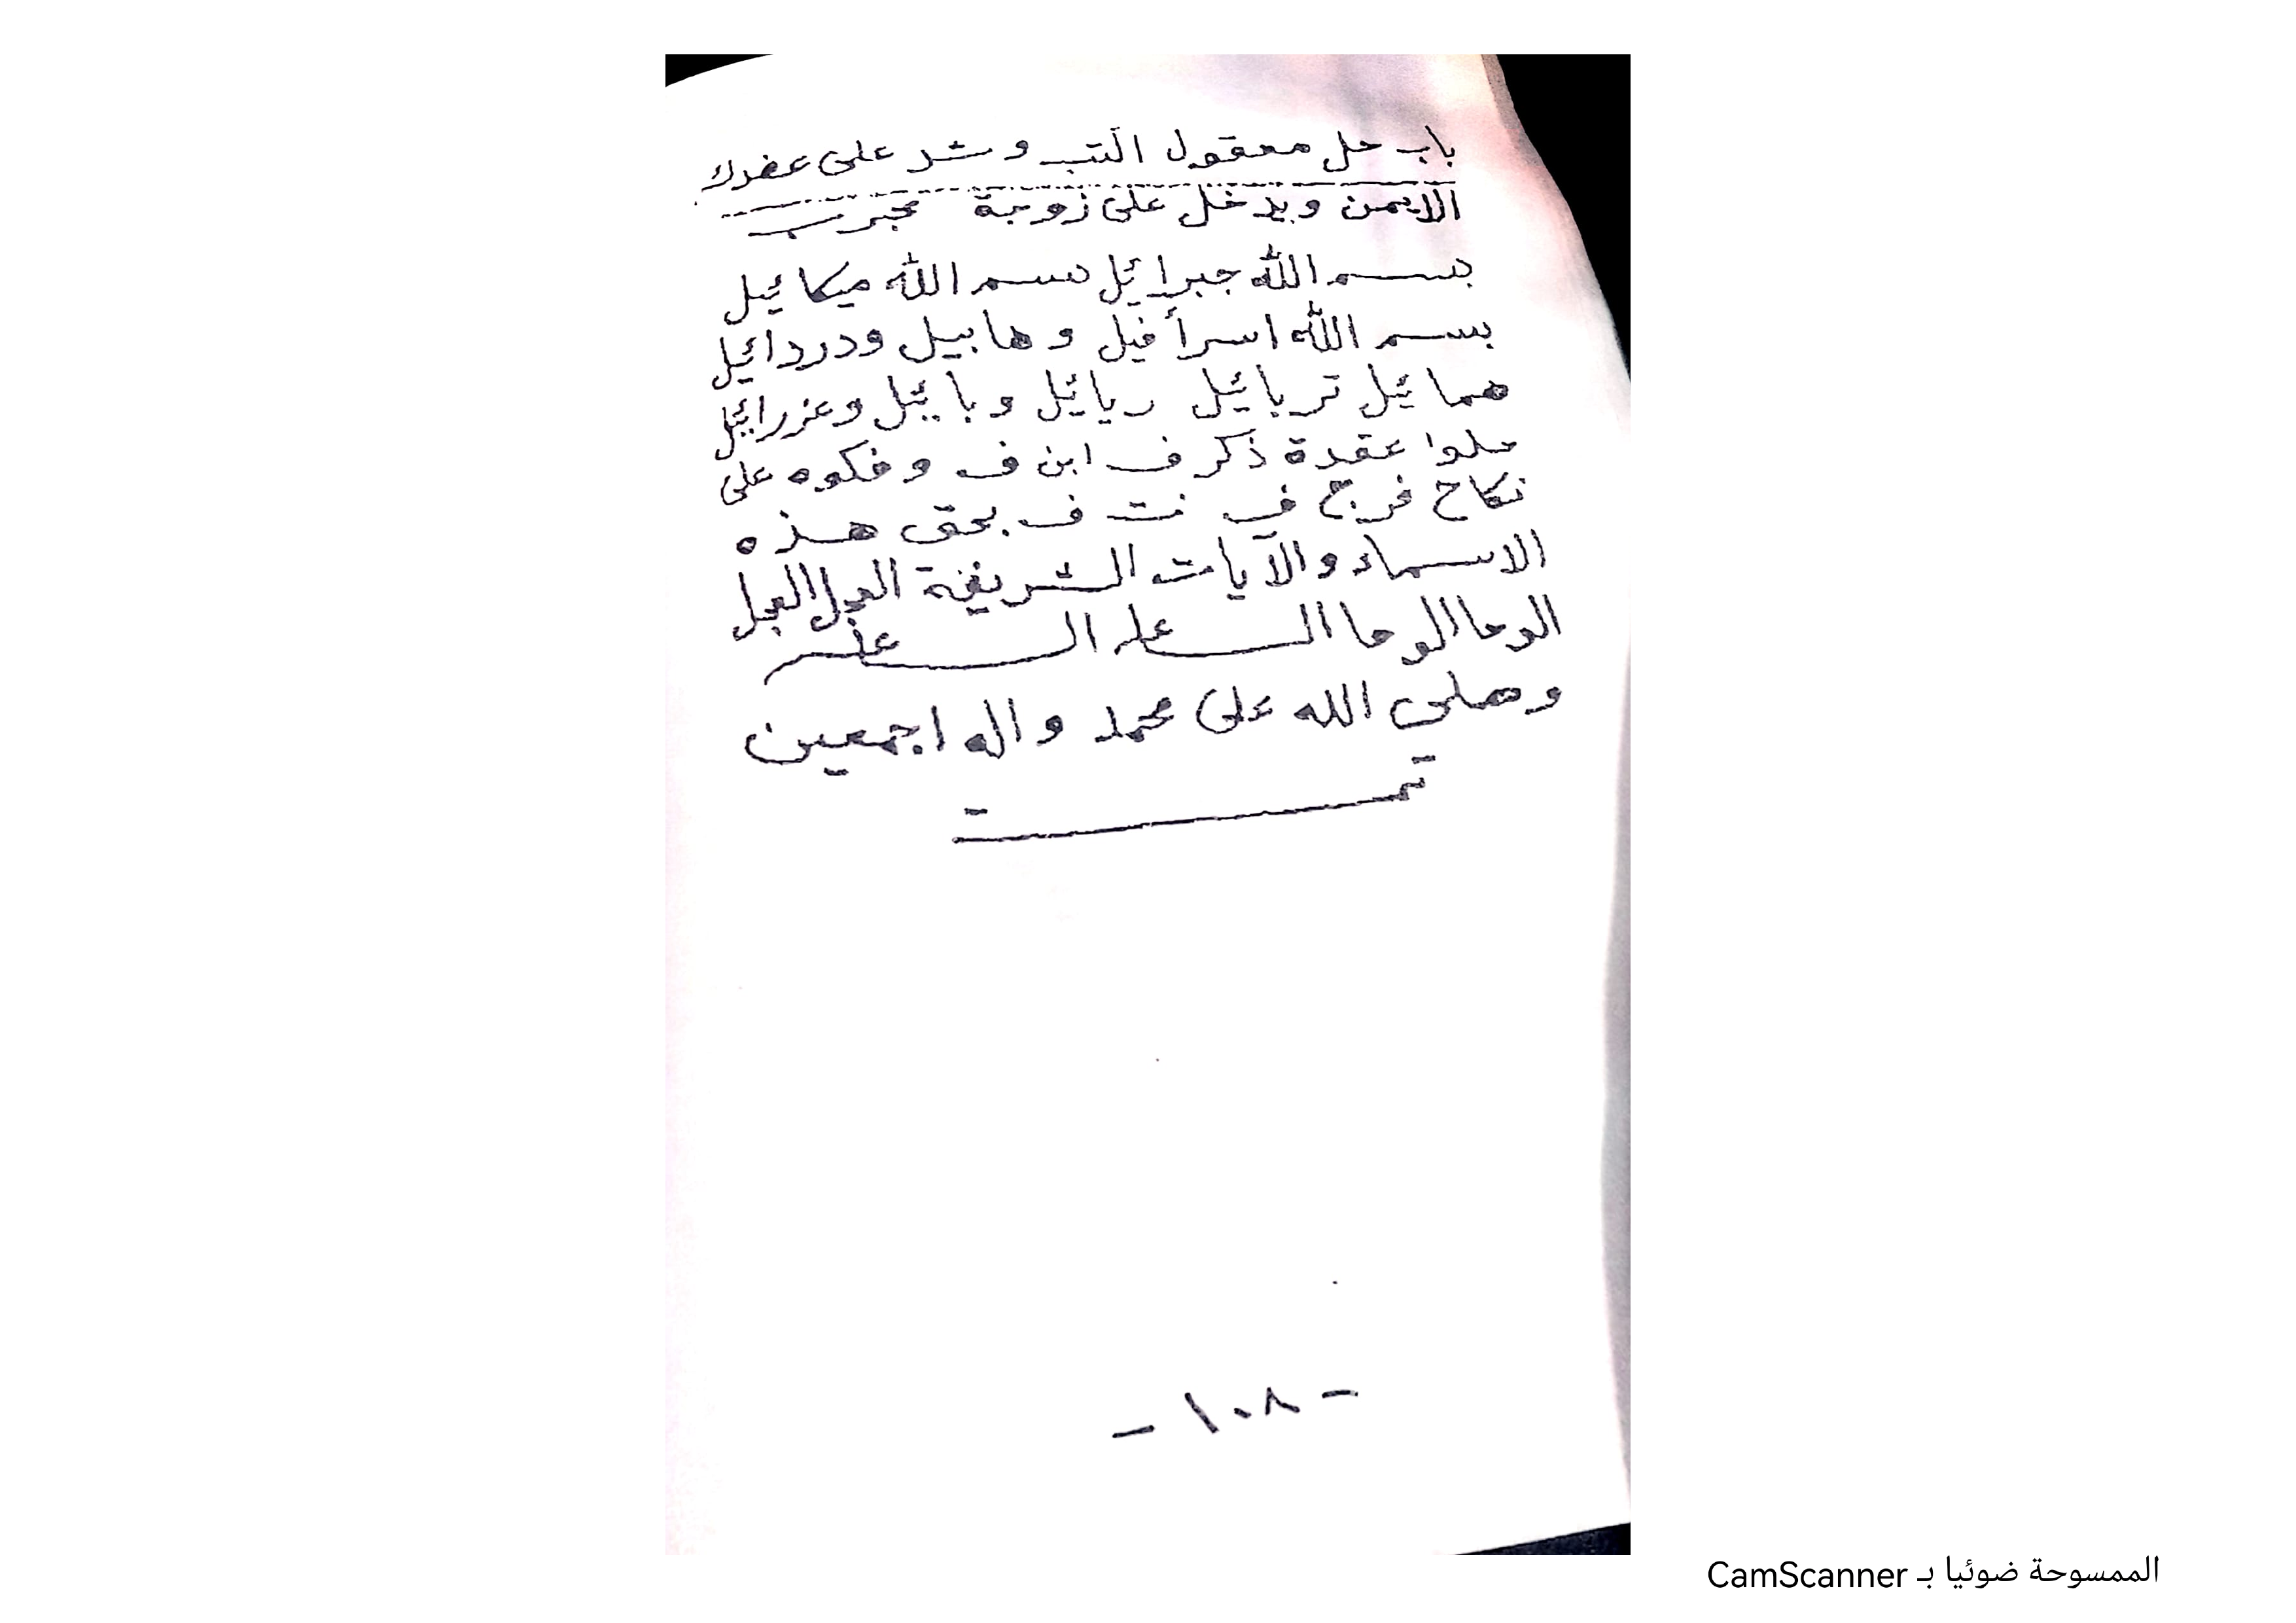 باب حل معقول اكتب وشد على عضدك
الايمن ويدخل على زوجة مجرب
بسم الله جبرائيل بسم الله ميكائيل
بسم الله اسرأفيل وهابيل ودردائيل
همائيل تربائيل ريائيل وبائيل وعزرائيل
حلوا عقدة ذكر ف ابن ف وفكوه على
نكاح فرج ف نت ف بحق هذه
الاسماء والآيات الشريفة العجل العجل
الوحا الوحا الساعه الساعة
وصلى الله على محمد واله اجمعين
تمت
- ١٠٨ -
الممسوحة ضوئيا بـ CamScanner